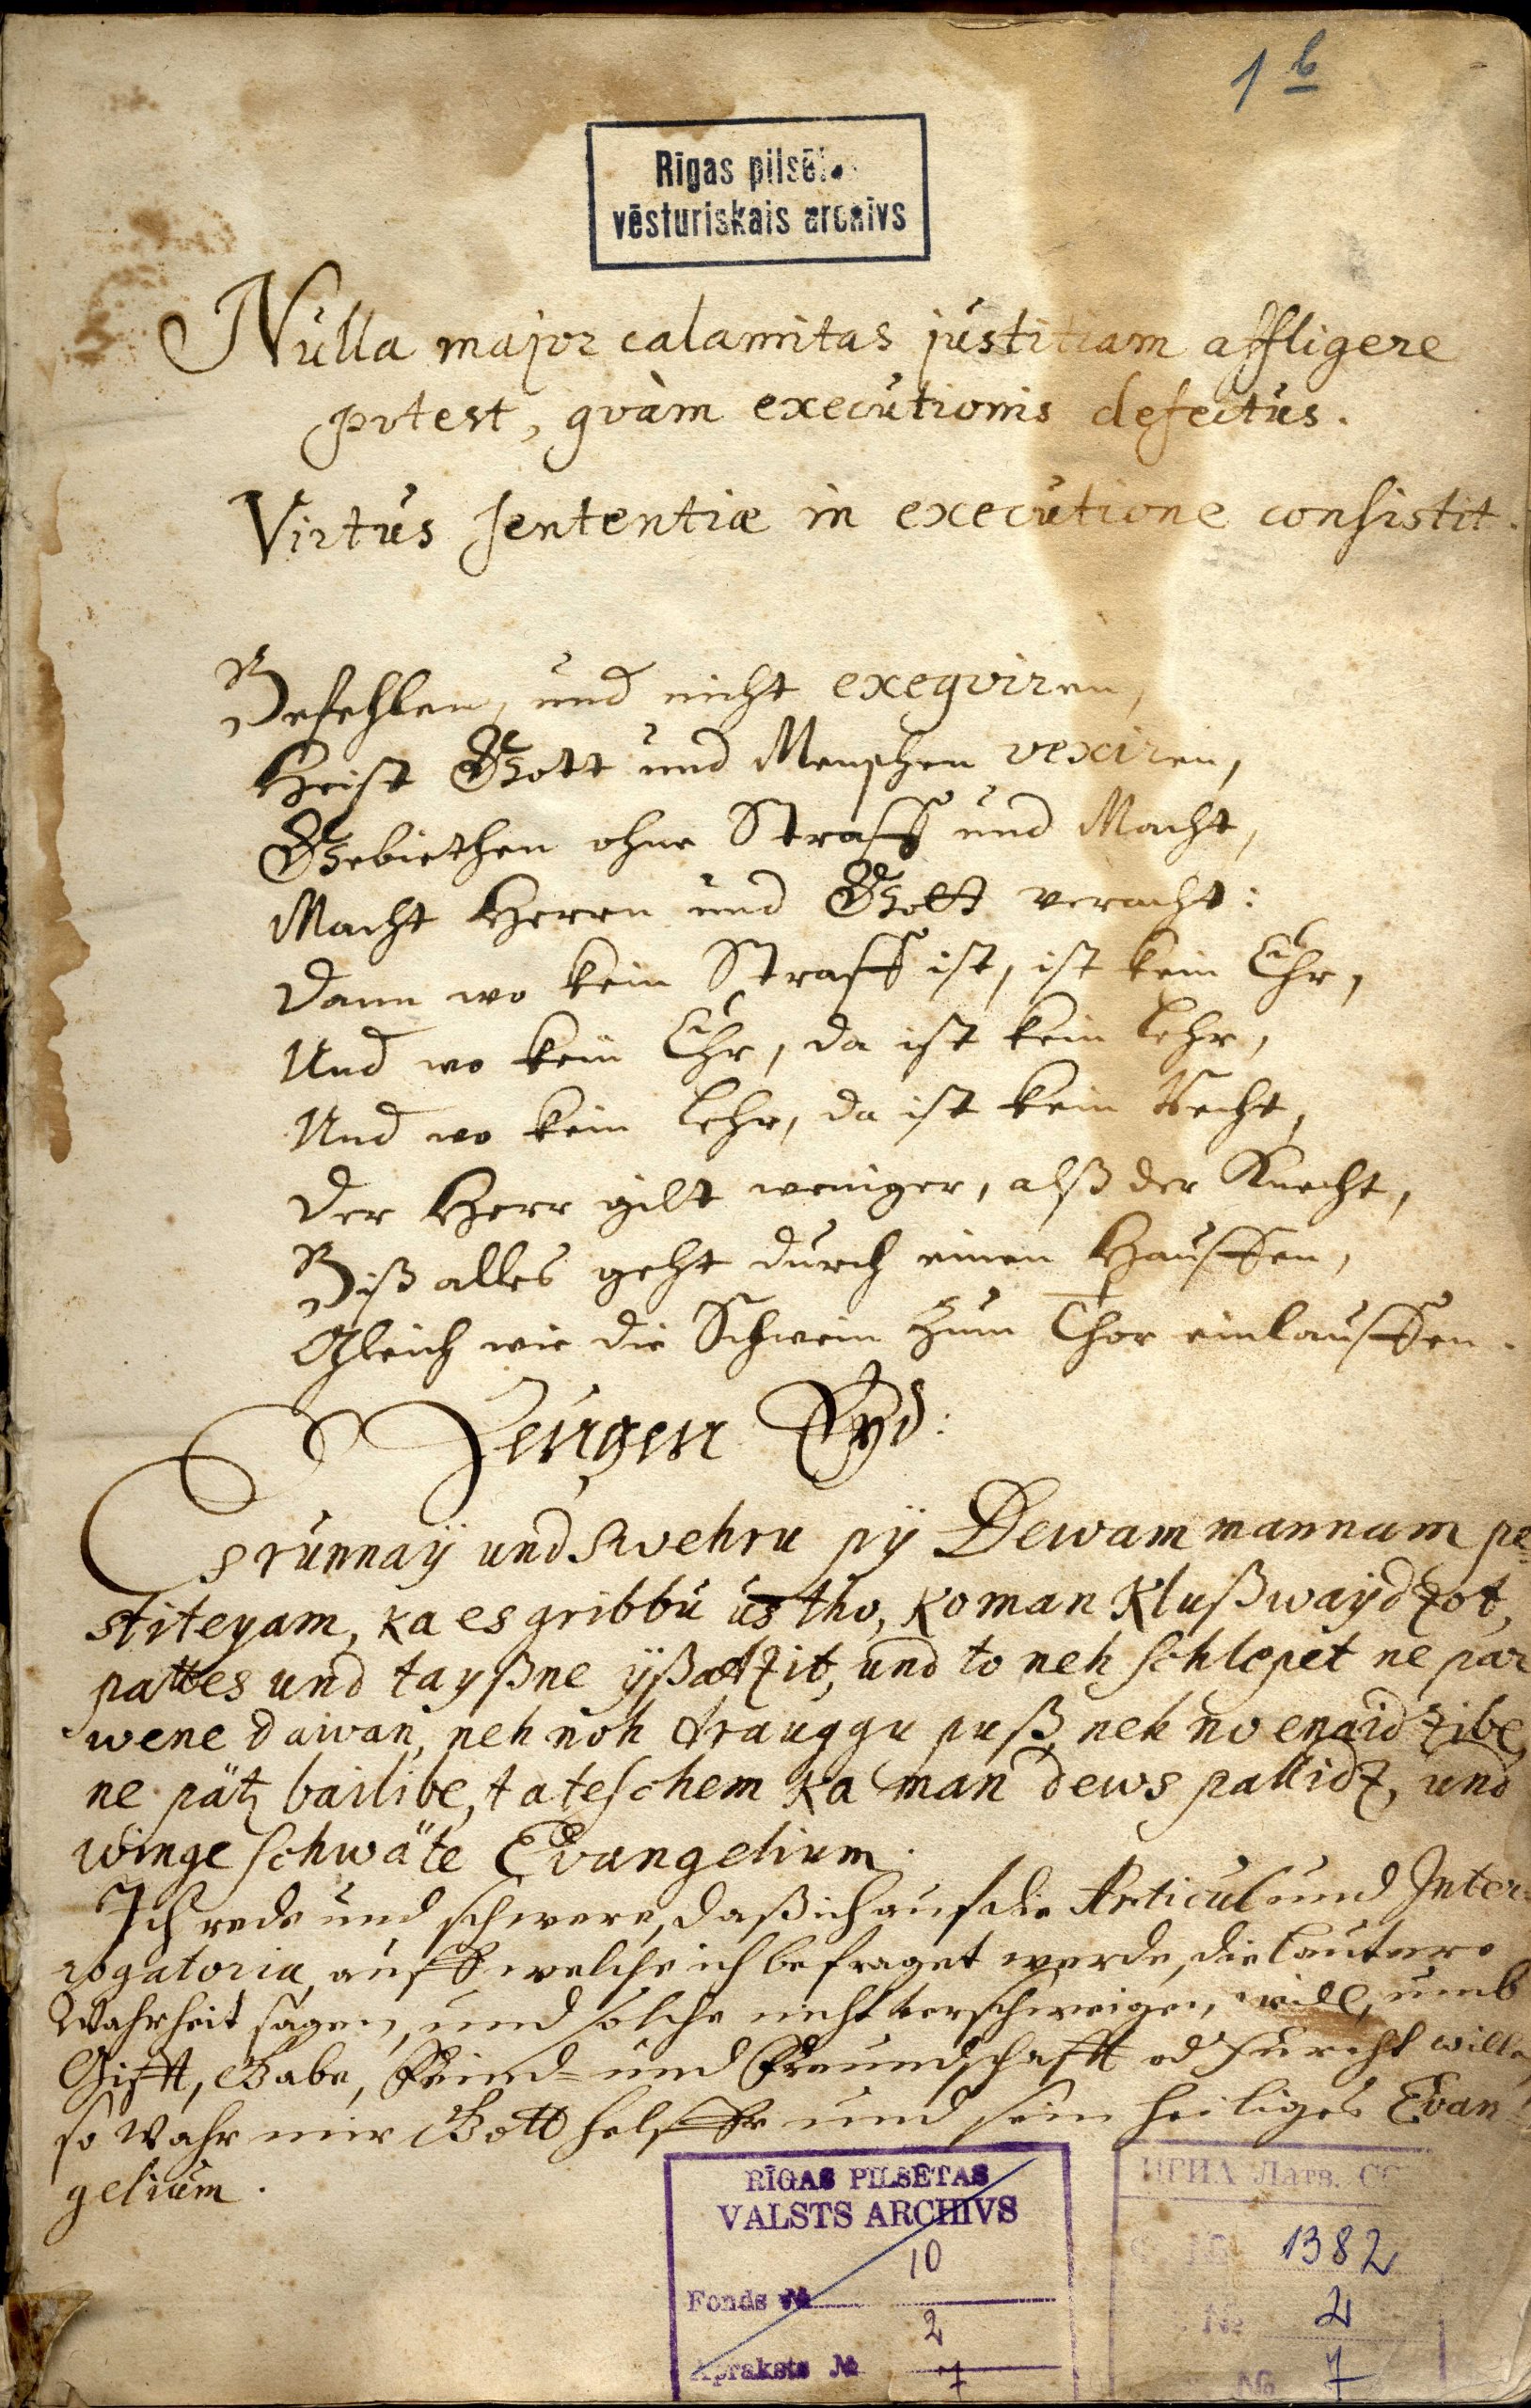 1 b
Rīgas pilsēt
vēsturiskais archivs
Nulla major calamitas justitiam affligere
potest, qvàm executionis defectus.
Virtus sententiæ in executione consistit.
Befehlen, und nicht exeqviren,
Heist Gott und Menschen vexiren,
Gebiethen ohne Straff und Macht,
Macht Herrn und Gott veracht:
Dann wo kein Straff ist, ist kein Ehr,
Und wo kein Ehr, da ist kein Lehr,
Und wo kein Lehr, da ist kein Recht,
Der Herr gilt weniger, alß der Knecht,
Biß alles geht durch einen Hauffen,
Gleich wie die Schwein zum Thor einlauffen.
Zeugen Eyd:
Es runnaÿ und swehru pÿ Dewam mannam pe-
stiteyam, ka es gribbu us tho, ko man Klußwaÿdzot,
pattes und tayßne ÿßatzit, und to neh schlepet ne par
wene dawan, neh noh drauggu puß, neh no enaidzibe,
ne pätz bailibe, tateschem ka man dews pallidz, und
winge schwäte Evangelium.
Ich rede und schwere, daß ich auf die Articul und Inter-
rogatoria, auff welche ich befraget werde, die lautere
Wahrheit sagen, und solche nicht verschweigen will, umb
Gifft, Gabe, Feind- und Freundschafft od Furcht wille,
so wahr mir Gott helffe und sein heiliges Evan-
gelium.
RĪGAS PILSĒTAS
VALSTS ARCHIVS
10
Fonds №
2
Apraksts №
7
ЦГИА Латв. СС
1382
№ 2
№ 7